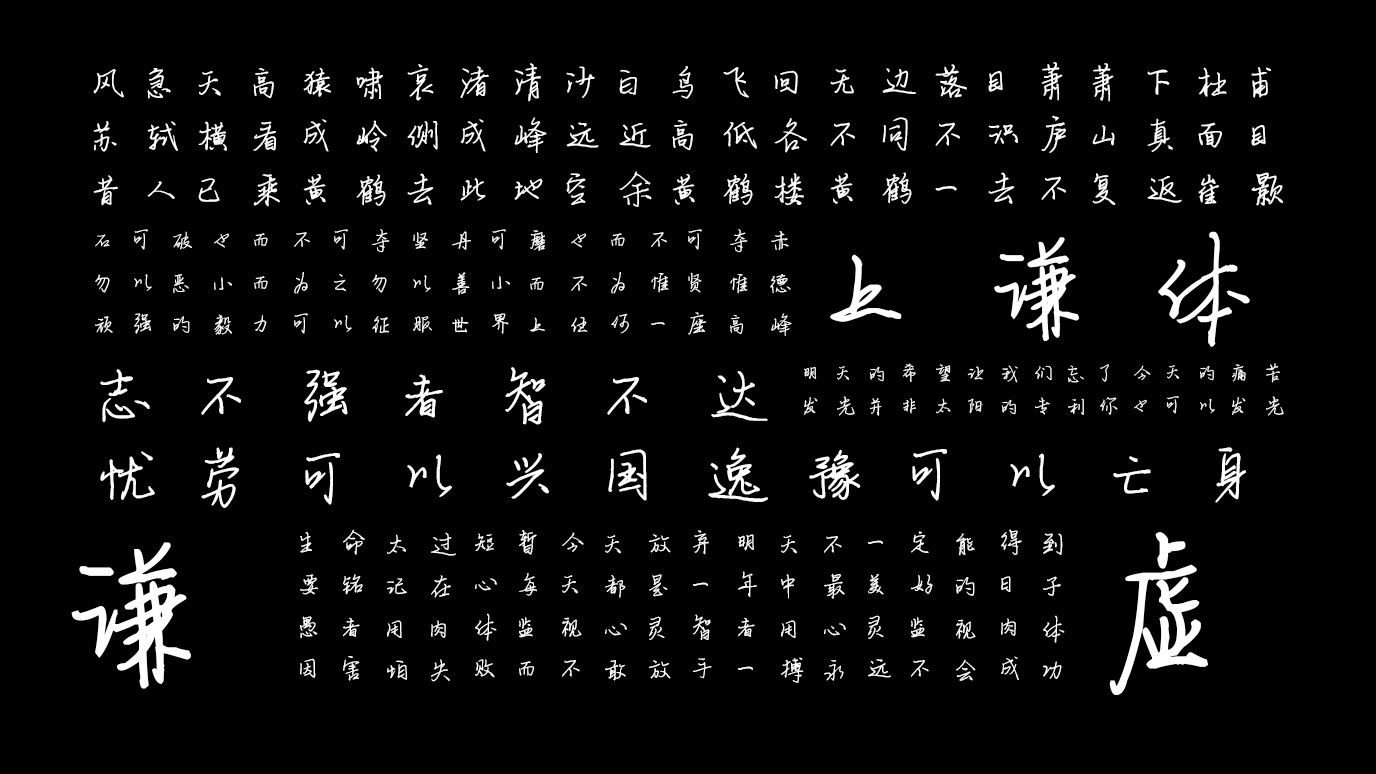 风急天高猿啸哀渚清沙白鸟飞回无边落目萧萧下杜甫
苏轼横看成岭侧成峰远近高低各不同不识庐山真面目
昔人已乘黄鹤去此地空余黄鹤楼黄鹤一去不复返崔颢
石可破也而不可夺坚丹可磨也而不可夺赤
勿以恶小而为之勿以善小而不为惟贤惟德
顽强的毅力可以征服世界上任何一座高峰
上谦体
志不强者智不达
明天的希望让我们忘了今天的痛苦
发光并非太阳的专利你也可以发光
忧劳可以兴国逸豫可以亡身
谦
生命太过短暂今天放弃明天不一定能得到
要铭记在心每天都是一年中最美好的日子
愚者用肉体监视心灵智者用心灵监视肉体
因害怕失败而不敢放手一搏永远不会成功
虚